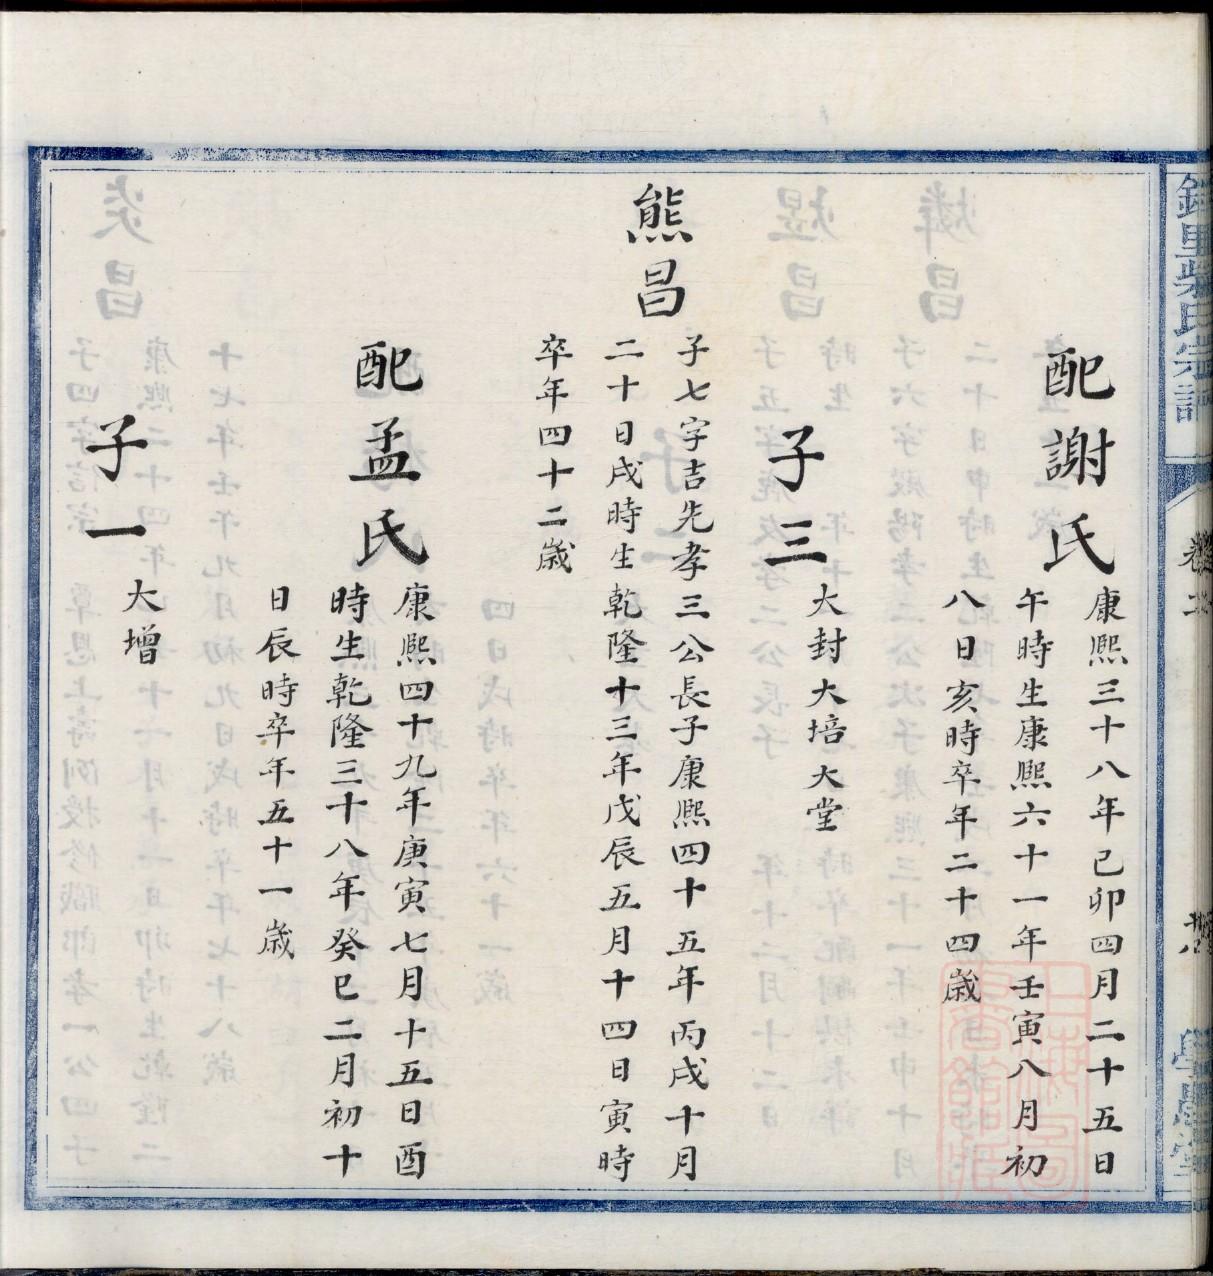 配謝氏
康熙三十八年己卯四月二十五日
午時生康熙六十一年壬寅八月初
八日亥時卒年二十四歲
子三
大封大培大堂
熊昌
子七字吉先孝三公長子康熙四十五年丙戌十月
二十日戌時生乾隆十三年戊辰五月十四日寅時
卒年四十二歲
配孟氏
康熙四十九年庚寅七月十五日酉
時生乾隆三十八年癸巳二月初十
日辰時卒年五十一歲
子一
大增